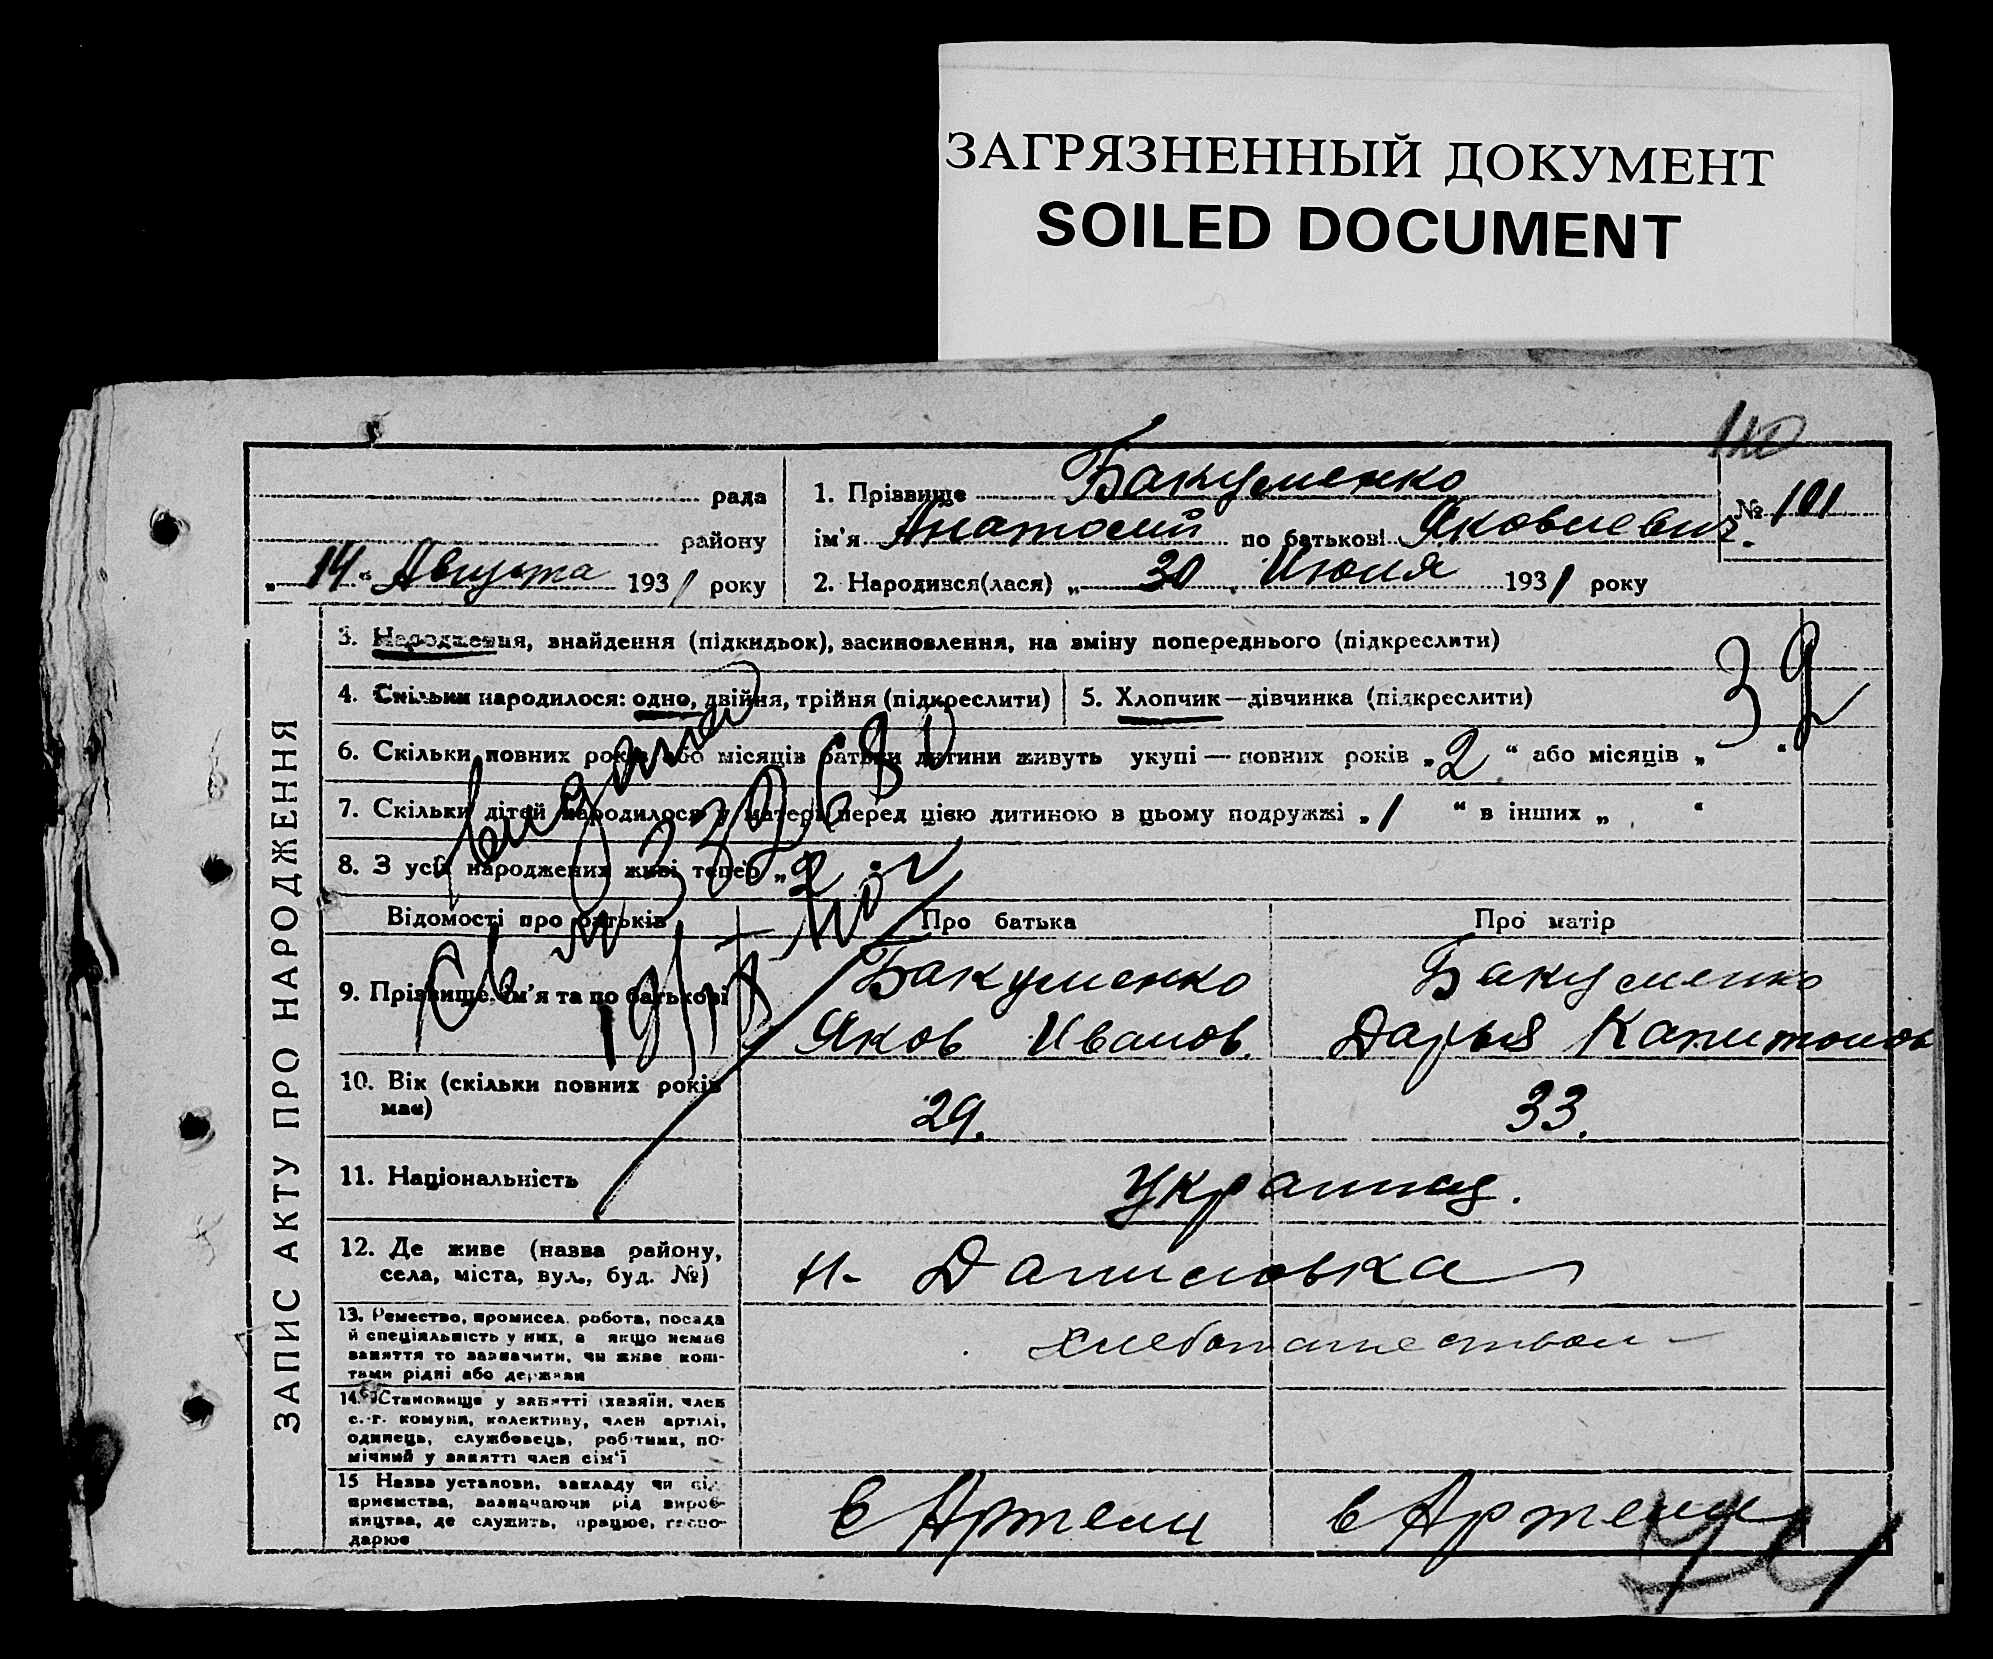 ЗАГРЯЗНЕННЫЙ ДОКУМЕНТ
SOILED DOCUMENT
ЗАПИС АКТУ ПРО НАРОДЖЕННЯ
рада
району
„ 14 “ Августа 1931 року
1. Прізвище Бакуменко
№ 101
ім’я Анатолий по батькові Яковлевич.
2. Народився(лася) „ 30 Июля 1931 року
3. Народження, знайдення (підкидьок), засиновлення, на зміну попереднього (підкреслити)
39
4. Скільки народилося: одно, двійня, трійня (підкреслити)
5. Хлопчик—дівчинка (підкреслити)
6. Скільки повних років або місяців батьки дитини живуть укупі — повних років „ 2 “ або місяців „ “
7. Скільки дітей народилося у матері перед цією дитиною в цьому подружжі „ 1 “ в інших „ “
8. З усіх народжених живі тепер „ 2
Відомості про батьків
Про батька
Про матір
9. Прізвище, ім’я та по батькові
Бакуменко
Яков Иванов.
Бакуменко
Дарья Капитонов
10. Вік (скільки повних років має)
29.
33.
11. Національність
Украинц.
12. Де живе (назва району,
села, міста, вул., буд. №)
н- Даниловка
13. Ремество, промисел, робота, посада
й спеціяльність у них, а якщо немає
заняття то зазначити, чи живе кош-
тами рідні або держави
хлебопашеством
14. Становище у занятті (хазяїн, член
с.-г. комуни, колективу, член артілі,
одинець, службовець, робітник, по-
мічний у занятті член сім’ї
15 Назва установи, закладу чи під-
приємства, зазначаючи рід вироб-
ництва, де служить, працює, госпо-
дарює
в Артели
в Артели